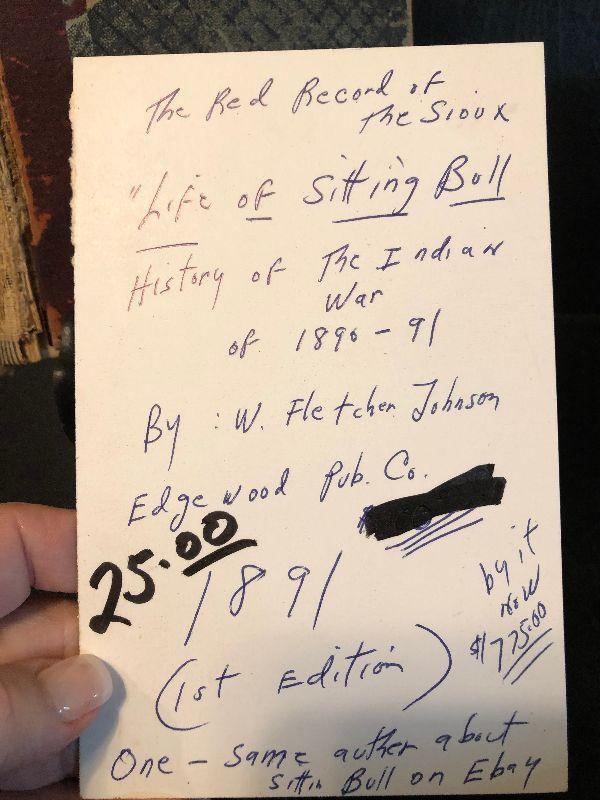 The Red Record of
The Sioux
"Life of Sitting Bull
History of The Indian
War
of 1890-91
By: W. Fletcher Johnson
Edgewood Pub. Co.
25.00
1891
by it
now
$1775.00
(1st Edition)
One - same auther about
Sittin Bull on Ebay